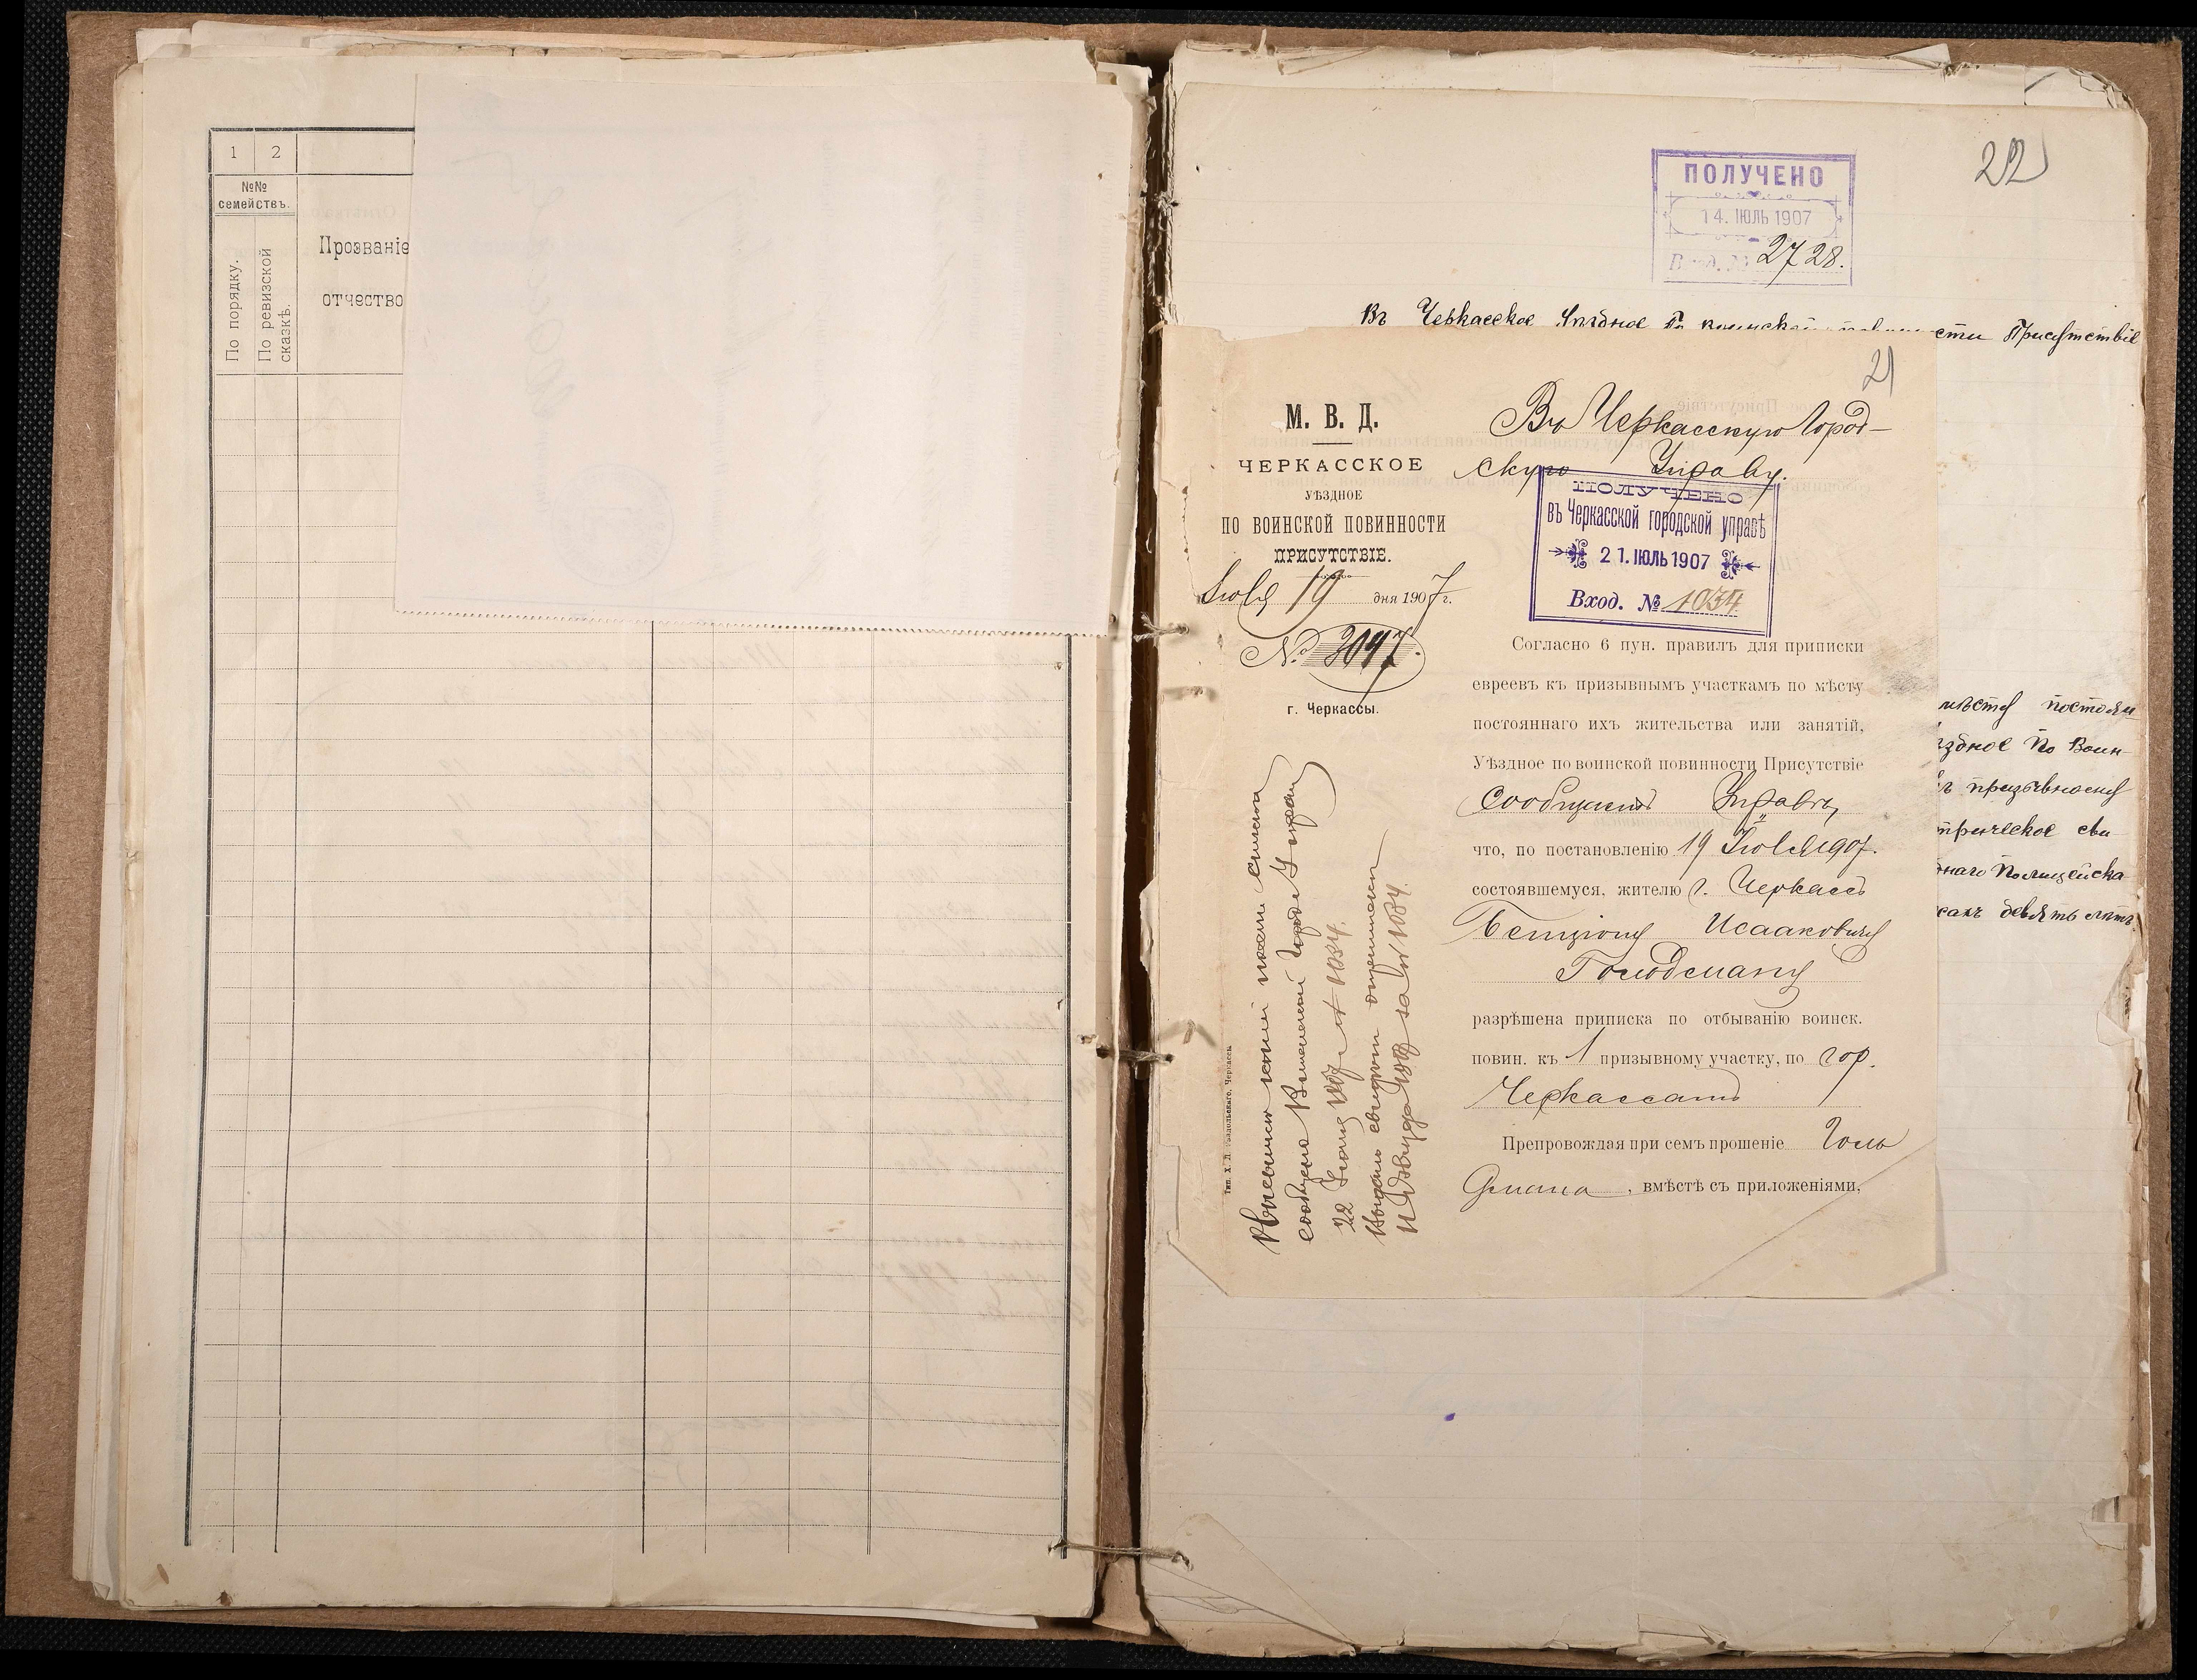 1 2
№№
семействъ.
По порядку.
По ревизской
сказкѣ.
Прозваніе
отчество
22
ПОЛУЧЕНО
14. ІЮЛЬ 1907
2728.
Въ Черкасское Уѣздное По воинской
сти Присутствіе
21
М. В. Д.
ЧЕРКАССКОЕ
УѢЗДНОЕ
ПО ВОИНСКОЙ ПОВИННОСТИ
ПРИСУТСТВІЕ.
Іюля 19 дня 1907 г.
№ 3047.
г. Черкассы.
Въ Черкасскую Город-
скую Управу.
ПОЛУЧЕНО
въ Черкасской городской управѣ
21. ІЮЛЬ 1907
Вход. № 1034
Согласно 6 пун. правилъ для приписки
евреевъ къ призывнымъ участкамъ по мѣсту
постояннаго ихъ жительства или занятій,
Уѣздное по воинской повинности Присутствіе
сообщаетъ Управѣ,
что, по постановленію 19 Іюля 1907.
состоявшемуся, жителю г. Черкассъ
Бенціону Исааковичу
Гольдсману
разрѣшена приписка по отбыванію воинск.
повин. къ 1 призывному участку, по гор.
Черкассамъ
Препровождая при семъ прошеніе Голь
дсмана, вмѣстѣ съ приложеніями,
сообщено Городс. Управы
22 1907 г. № 1034.
за № 1034.
Тип. Х. Л. Раздольскаго, Черкассы.
мѣсту постоян
ѣздное По Воин-
ъ призывному
трическое сви
днаго Полицейска
девять лѣтъ